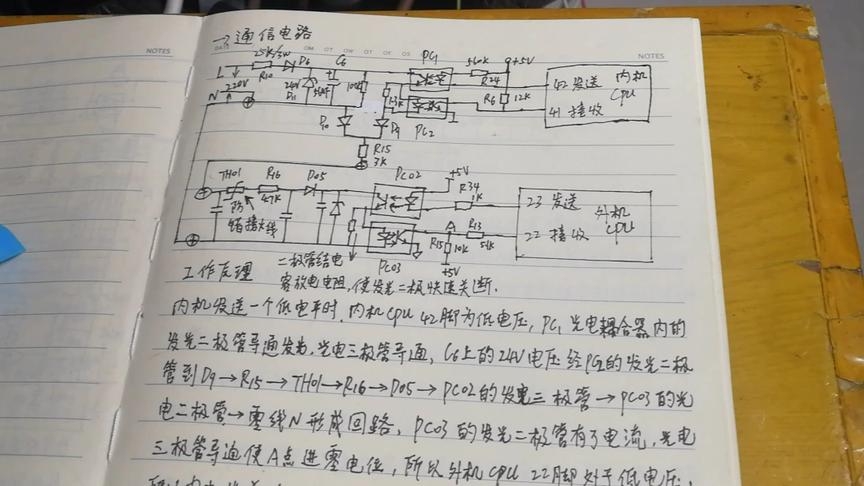 →通信电路
NOTES
NOTES
25K/3W
D6
C6
PC1
560K
+5V
L
R10
220V
N
24V
D11
R24
R6
12K
42 发送
41 接收
内机
CPU
D10
D9
PC2
R15
3K
TH01
R16
D05
PC02
+5V
R34
1K
23 发送
22 接收
外机
CPU
47K
A
R13
R15
10K
+5V
PC03
工作原理
二极管结电
容放电电阻,使发光二极快速关断.
内机发送一个低电平时,内机CPU 42脚为低电压, PC1 光电耦合器内的
发光二极管导通发光,光电三极管导通, C6上的24V电压经PC2的发光二极
管到D9→R15→TH01→R16→D05→PC02的发光三极管→PC03的光
电二极管→零线N形成回路, PC03的发光二极管有了电流,光电
三极管导通使A点进零电位,所以外机CPU 22脚处于低电压,